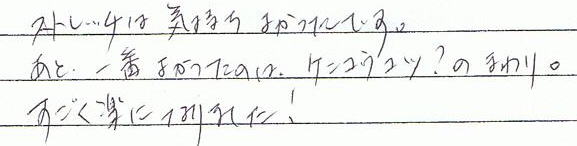 ストレッチは 気持ち よかったです。
あと、一番 よかったのは、ケンコウコツ?の まわり。
すごく楽に なりました!